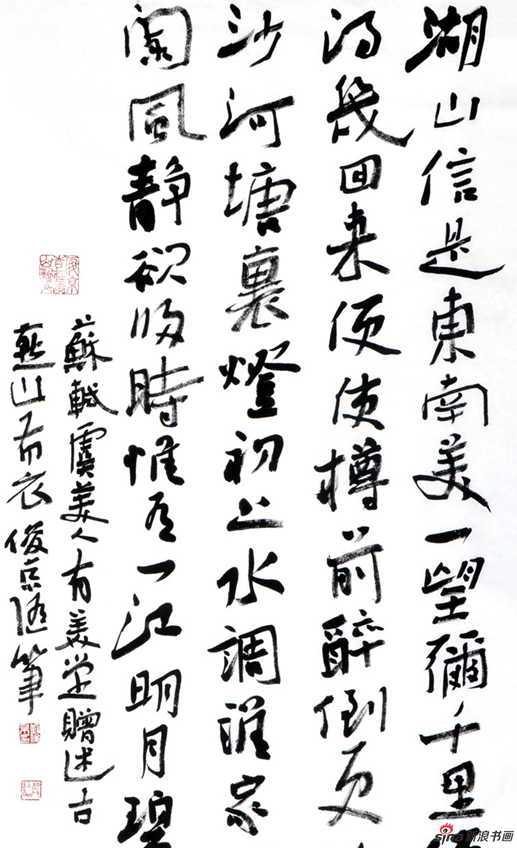 湖山信是東南美一望彌千里
得幾回来便使樽前醉倒更
沙河塘裏燈初上水調誰家
闌風静欲归時惟有一江明月碧
蘇軾虞美人有美堂贈述古
燕山布衣俊京随筆
sina新浪书画